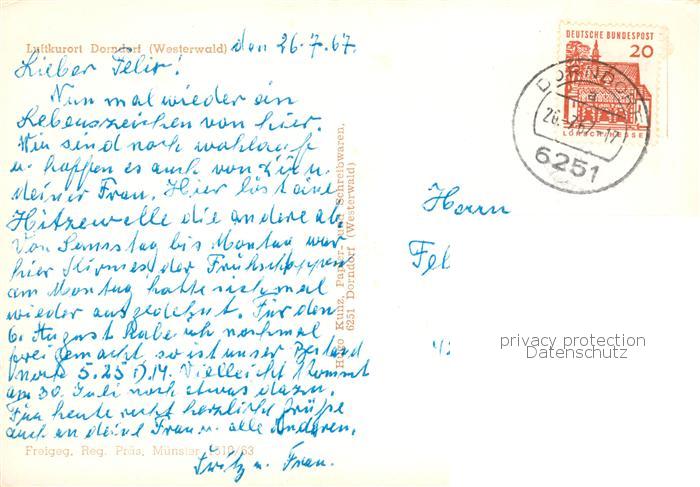 Luftkurort Dorndorf (Westerwald) den 26.7.67.
Lieber Felix!
Nun mal wieder ein
Lebenszeichen von hier.
Wir sind noch wohlauf
u. hoffen es auch von Dir u.
deiner Frau. Hier löst eine
Hitzewelle die andere ab.
Von Samstag bis Montag war
hier Kirmes, der Frühschoppen
am Montag hatte sich mal
wieder ausgedehnt. Für den
6. August habe ich nochmal
frei gemacht, so ist unser Bestand
5.25
Vielleicht kommt
am 30. Juli noch etwas dazu.
Für heute recht herzliche Grüße
auch an deine Frau u. alle anderen.
Fritz u. Frau.
Freigeg. Reg. Präs. Münster 1319/63
Hugo Kunz, Papier- und Schreibwaren,
6251 Dorndorf (Westerwald)
DEUTSCHE BUNDESPOST
20
LORSCH/HESSEN
DORNDORF
6251
Herrn
Fel
privacy protection
Datenschutz